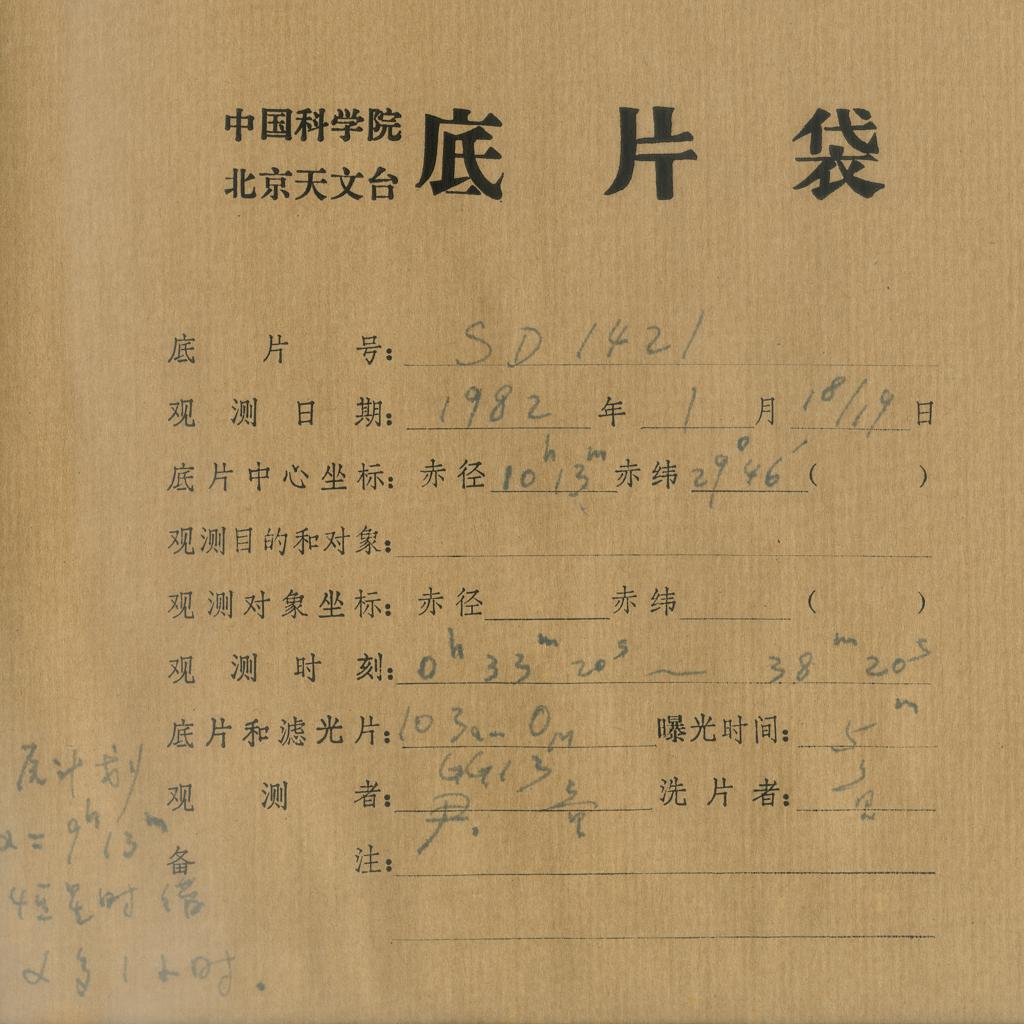 中国科学院
北京天文台 底片袋
底片号: SD 1421
观测日期: 1982 年 1 月 18/19 日
底片中心坐标: 赤径 10ʰ13ᵐ 赤纬 29°46′ ( )
观测目的和对象:
观测对象坐标: 赤径 赤纬 ( )
观测时刻: 0ʰ 33ᵐ 20ˢ ~ 38ᵐ 20ˢ
底片和滤光片: 103a-O 曝光时间: 5ᵐ
GG13
观测者: 尹. 洗片者:
备注:
原计划
α=9ʰ13ᵐ
恒星时错
α多1小时.